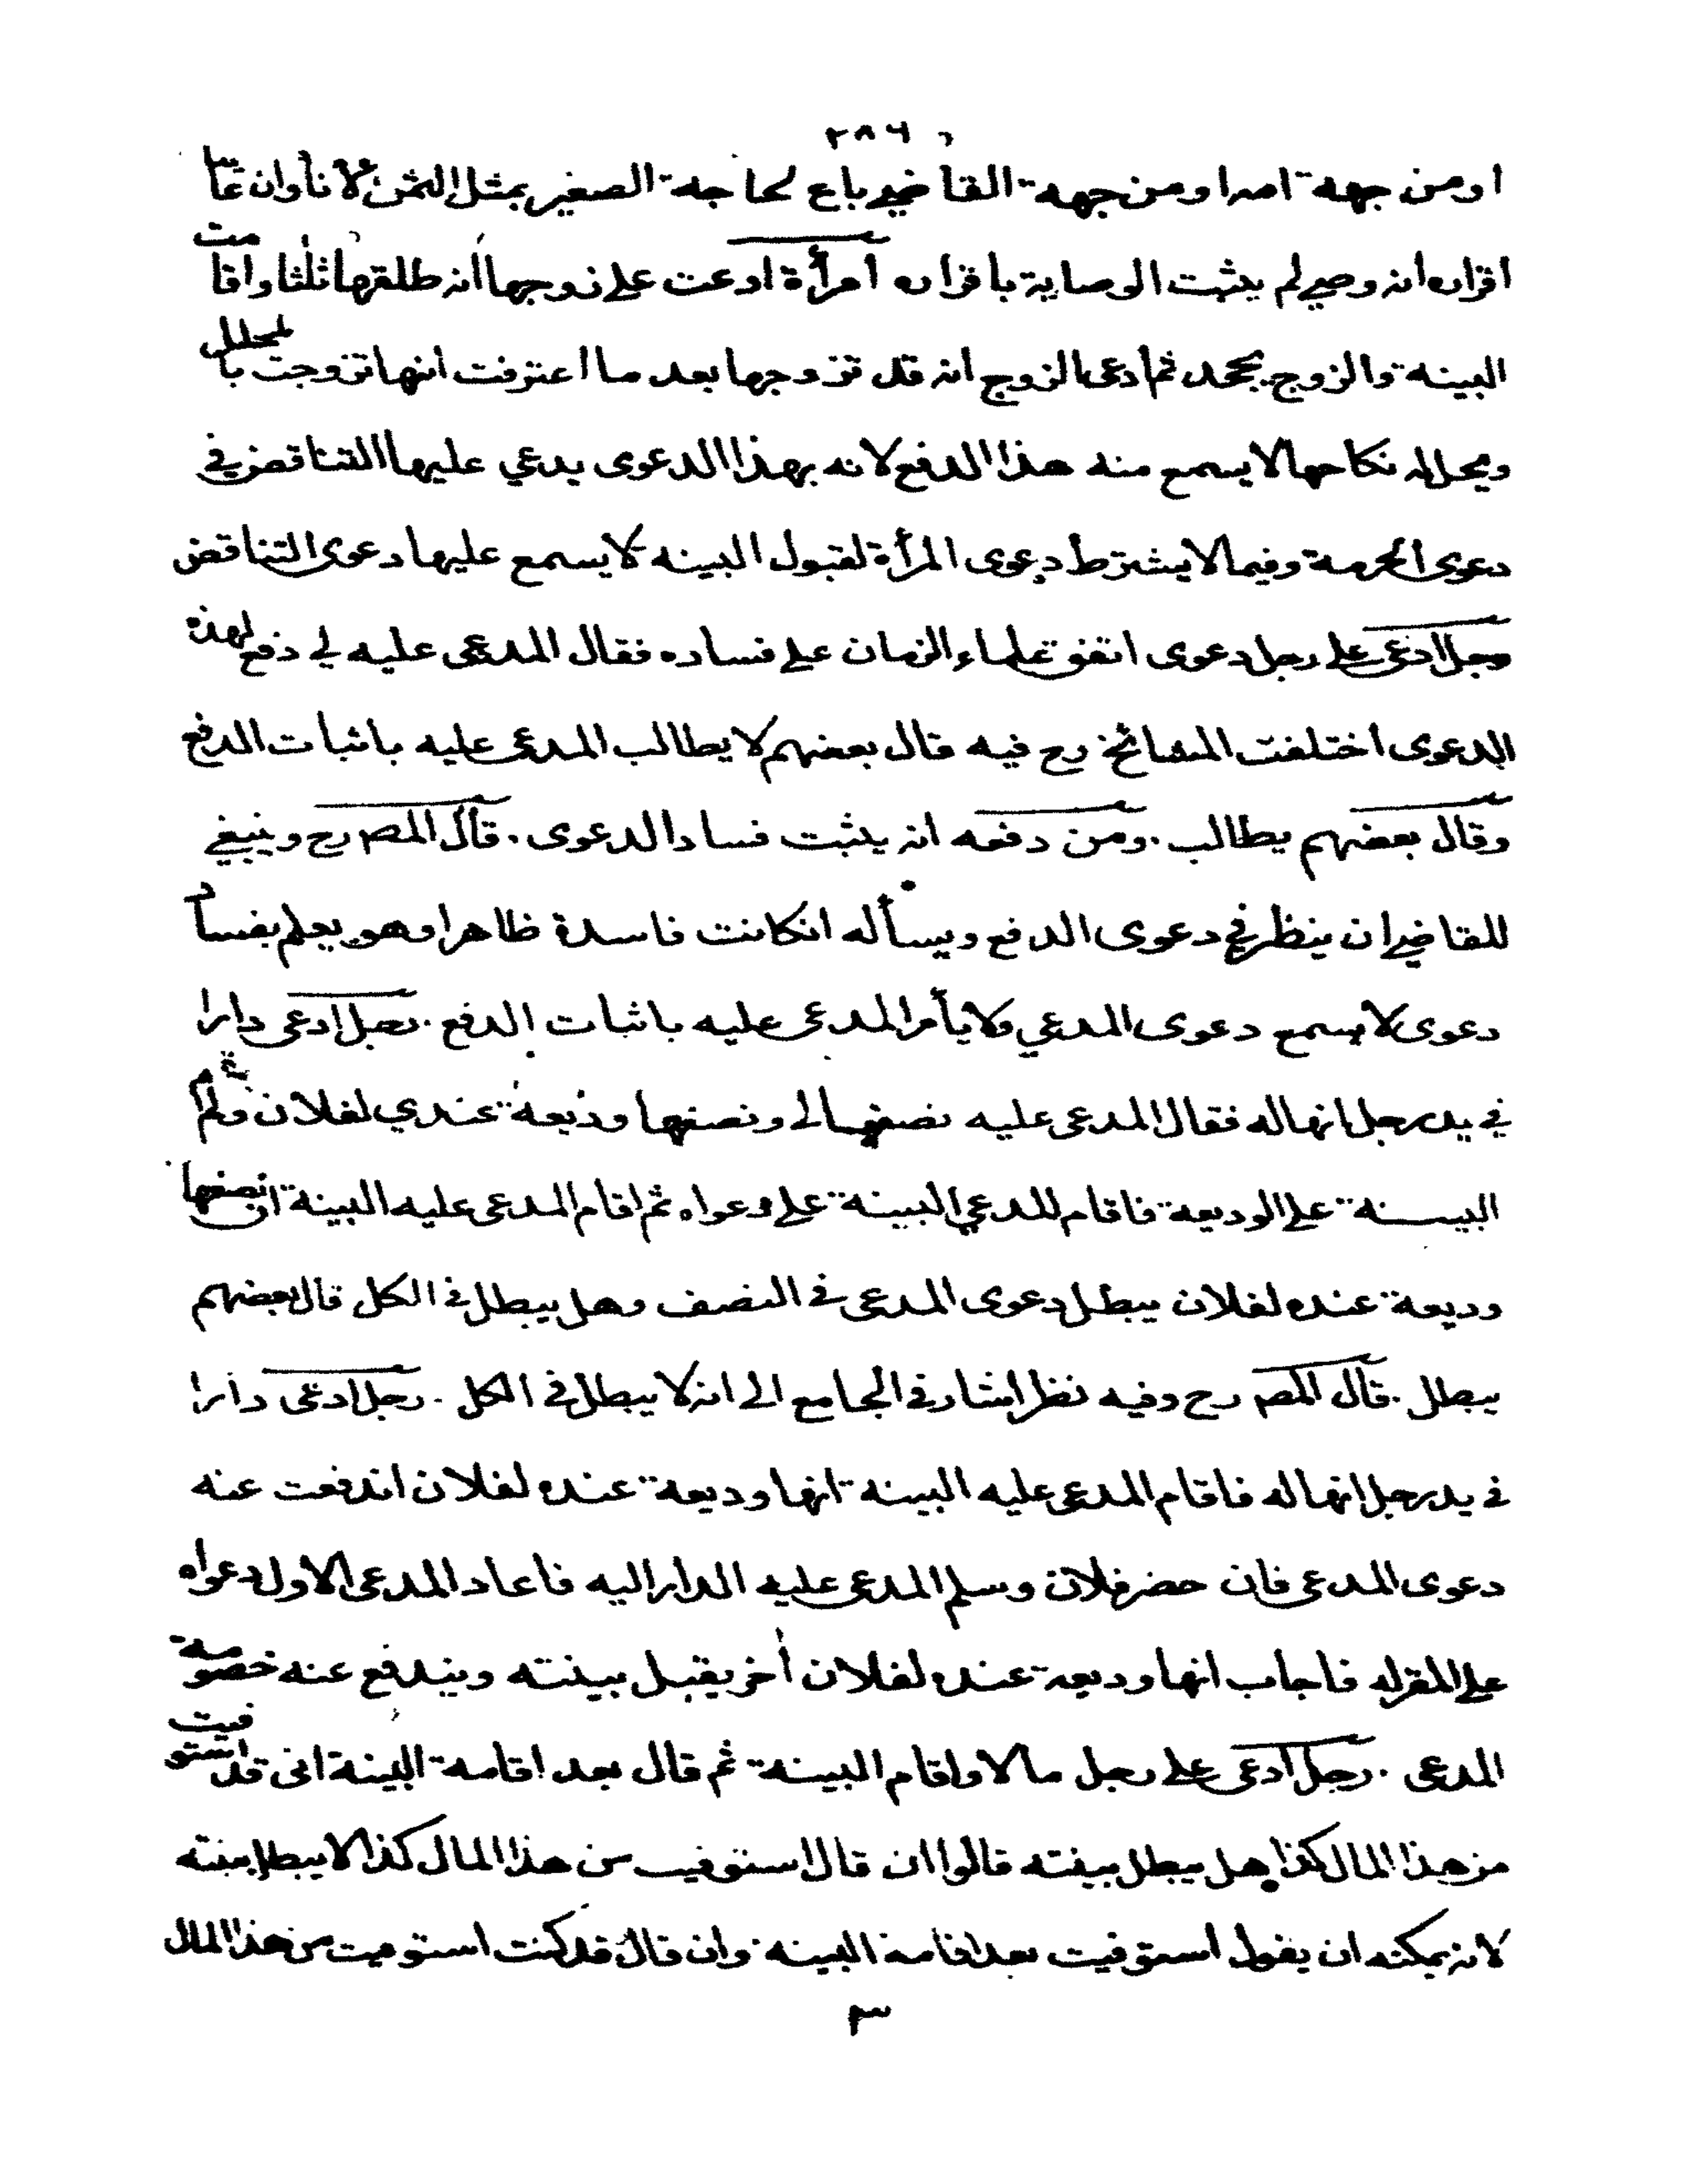 ٢٨٦
او من جهة امه او من جهة القاضي باع لحاجة الصغير بمثل الثمن لانا وان
اقراره انه وصي لم يثبت الوصاية باقراره امرأة ادعت على زوجها انه طلقها ثلثا واقامت
البينة والزوج يجحد ثم ادعى الزوج انه قد تزوجها بعد ما اعترفت انها تزوجت بالمحلل
ويحل له نكاحها لا يسمع منه هذا الدفع لانه بهذا الدعوى يدعي عليها التناقض في
دعوى الحرمة وفيما لا يشترط دعوى المرأة لقبول البينه لا يسمع عليها دعوى التناقض
رجل ادعى على رجل دعوى اتفق علماء الزمان على فساده فقال المدعى عليه لي دفع لهذه
الدعوى اختلفت المشائخ رح فيه قال بعضهم لا يطالب المدعى عليه باثبات الدفع
وقال بعضهم يطالب . ومن دفعه انه يثبت فساد الدعوى . قال المص رح وينبغي
للقاضي ان ينظر في دعوى الدفع ويسأله ان كانت فاسدة ظاهرا وهو يعلم بفساد
دعوى لا يسمع دعوى المدعي ولا يأمر المدعى عليه باثبات الدفع . رجل ادعى دارا
في يد رجل انها له فقال المدعى عليه نصفها لي ونصفها وديعة عندي لفلان ولم
البينة على الوديعة فاقام المدعي البينة على دعواه ثم اقام المدعى عليه البينة ان نصفها
وديعة عنده لفلان يبطل دعوى المدعى في النصف وهل يبطل في الكل قال بعضهم
يبطل . قال المص رح وفيه نظر اشار في الجامع الى انه لا يبطل في الكل . رجل ادعى دارا
في يد رجل انها له فاقام المدعى عليه البينة انها وديعة عنده لفلان اندفعت عنه
دعوى المدعى فان حضر فلان وسلم المدعى عليه الدار اليه فاعاد المدعى الاول دعواه
على المقر له فاجاب انها وديعة عنده لفلان أخر يقبل بينته ويندفع عنه خصومة
المدعى . رجل ادعى على رجل مالا واقام البينة ثم قال بعد اقامة البينة انى قد استوفيت
من هذا المال كذا هل يبطل بينته قالوا ان قال استوفيت من هذا المال كذا لا يبطل بينته
لانه يمكنه ان يقول استوفيت بعد اقامة البينه وان قال قد كنت استوفيت من هذا المال
٣